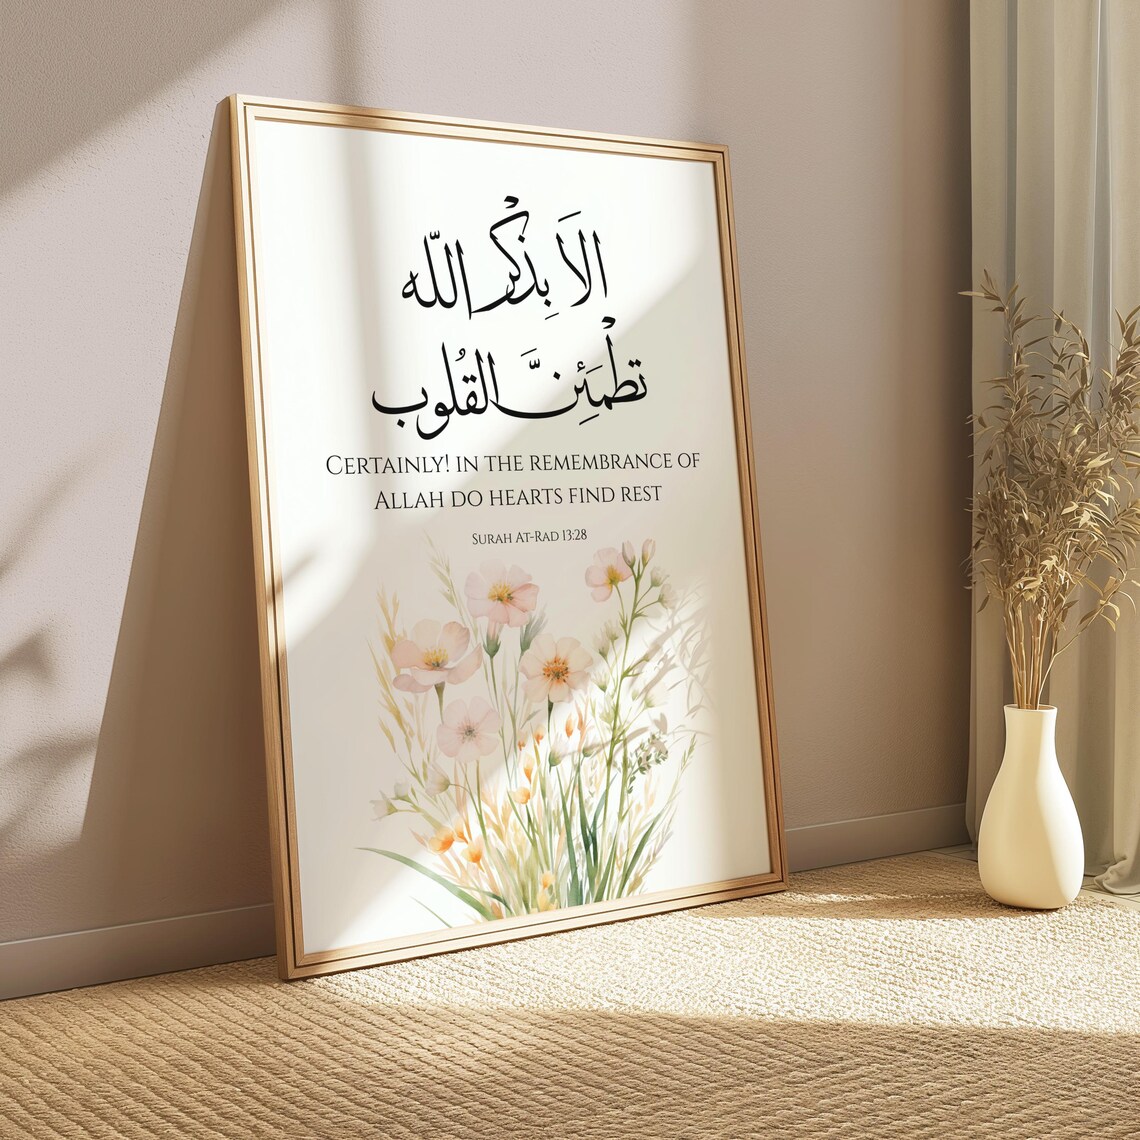 الَا بِذِكْرِ اللّه
تَطْمَئِنَّ القُلوب
Certainly! in the remembrance of
Allah do hearts find rest
Surah At-Rad 13:28